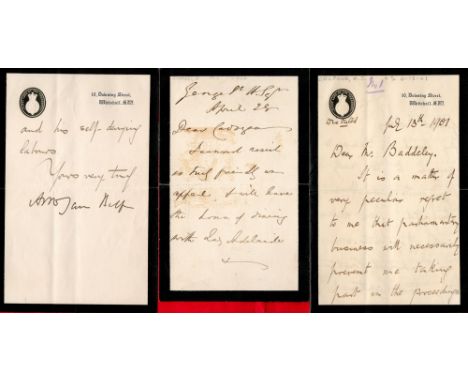 10, Downing Street,
Whitehall, S.W.
and his self denying
labours
Yours very truly
Arthur James Balfour
April 28
Dear Cadogan
I cannot resist
so truly friendly an
appeal. I will have
the honor of dining
with Lady Adelaide
10, Downing Street,
Whitehall, S.W.
July 13th 1901
Dear Mr. Baddeley,
It is a matter of
very peculiar regret
to me that parliamentary
business will necessarily
prevent me taking
part in the proceedings